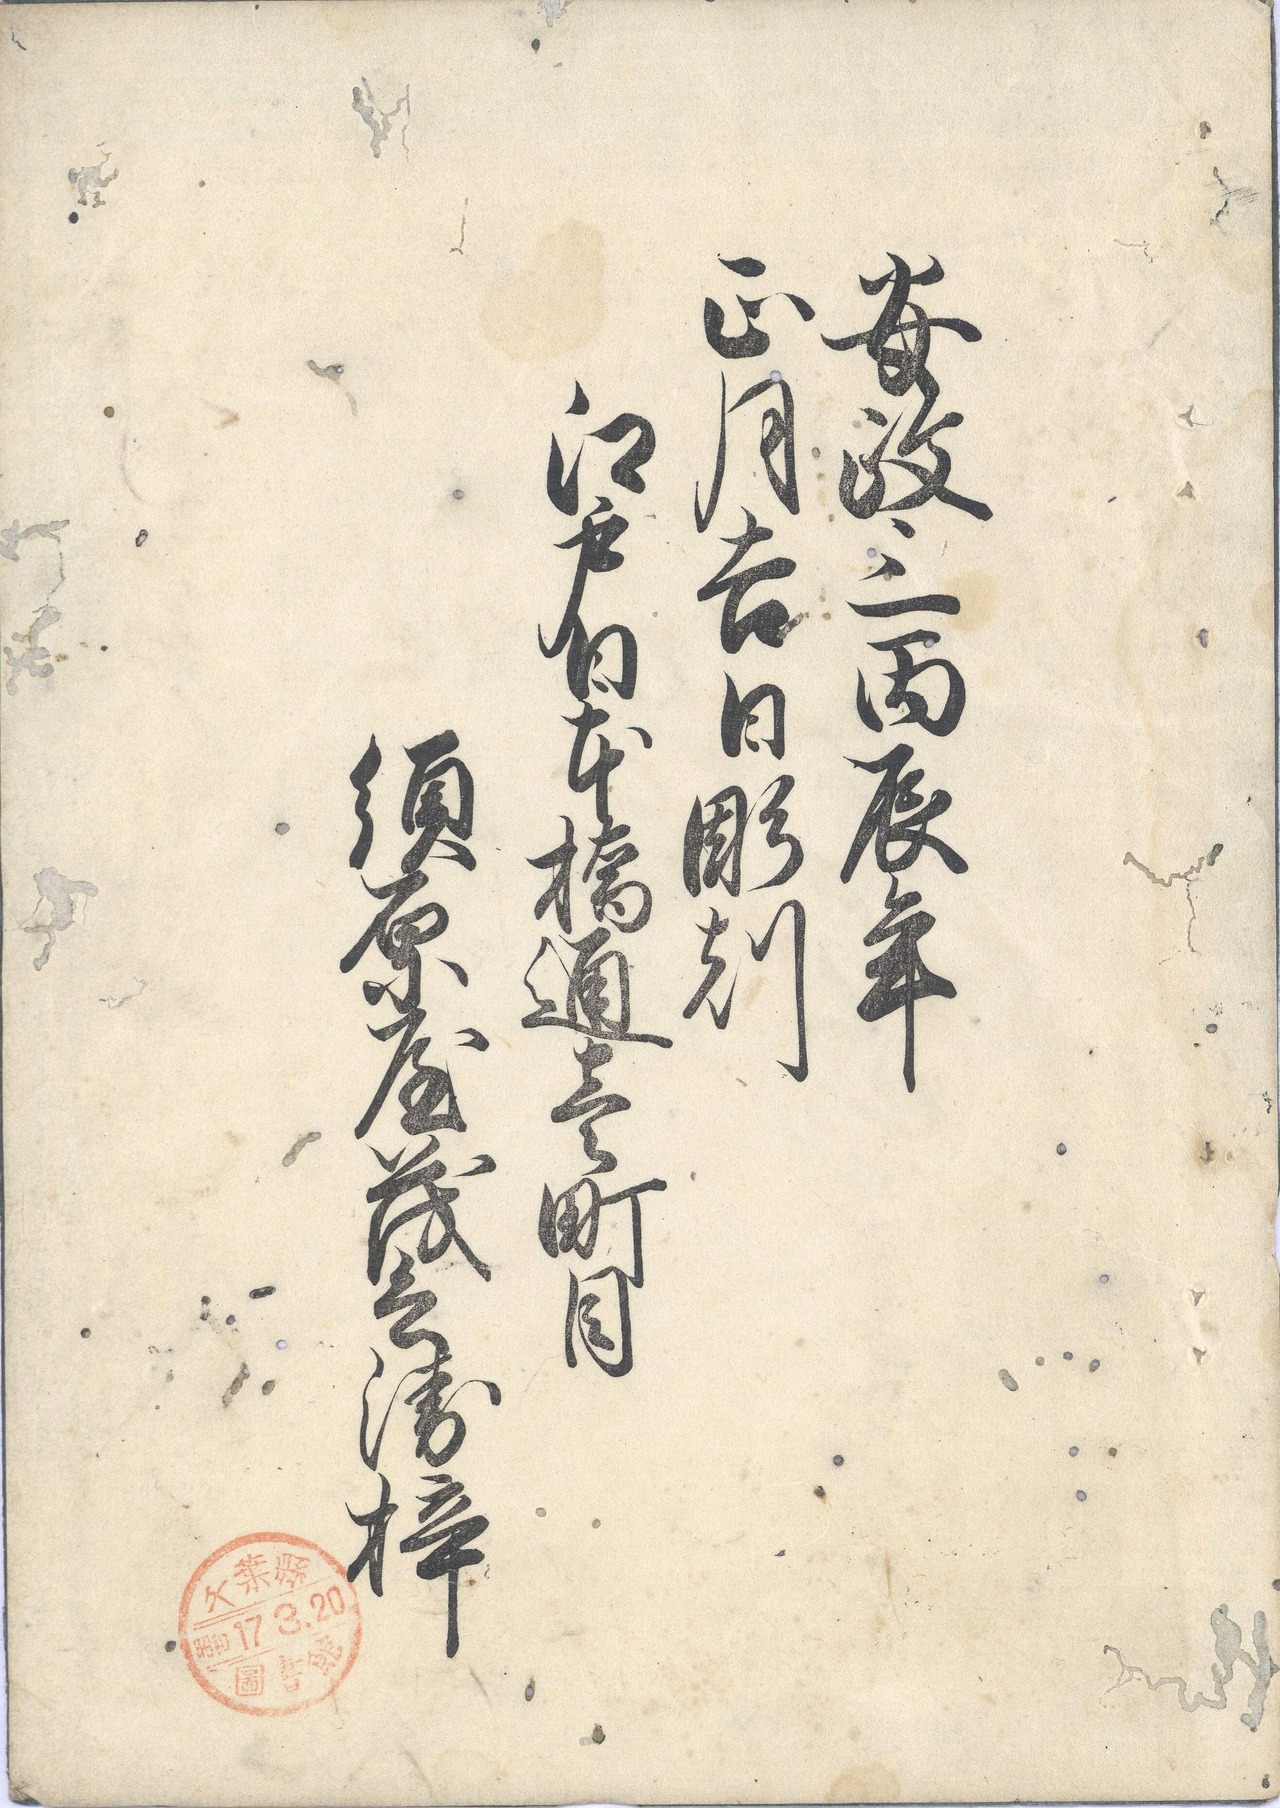 安政三丙辰年
正月吉日彫刻
江戸日本橋通壱町目
須原屋茂兵衛梓
葉縣
昭和17.3.20
圖書館